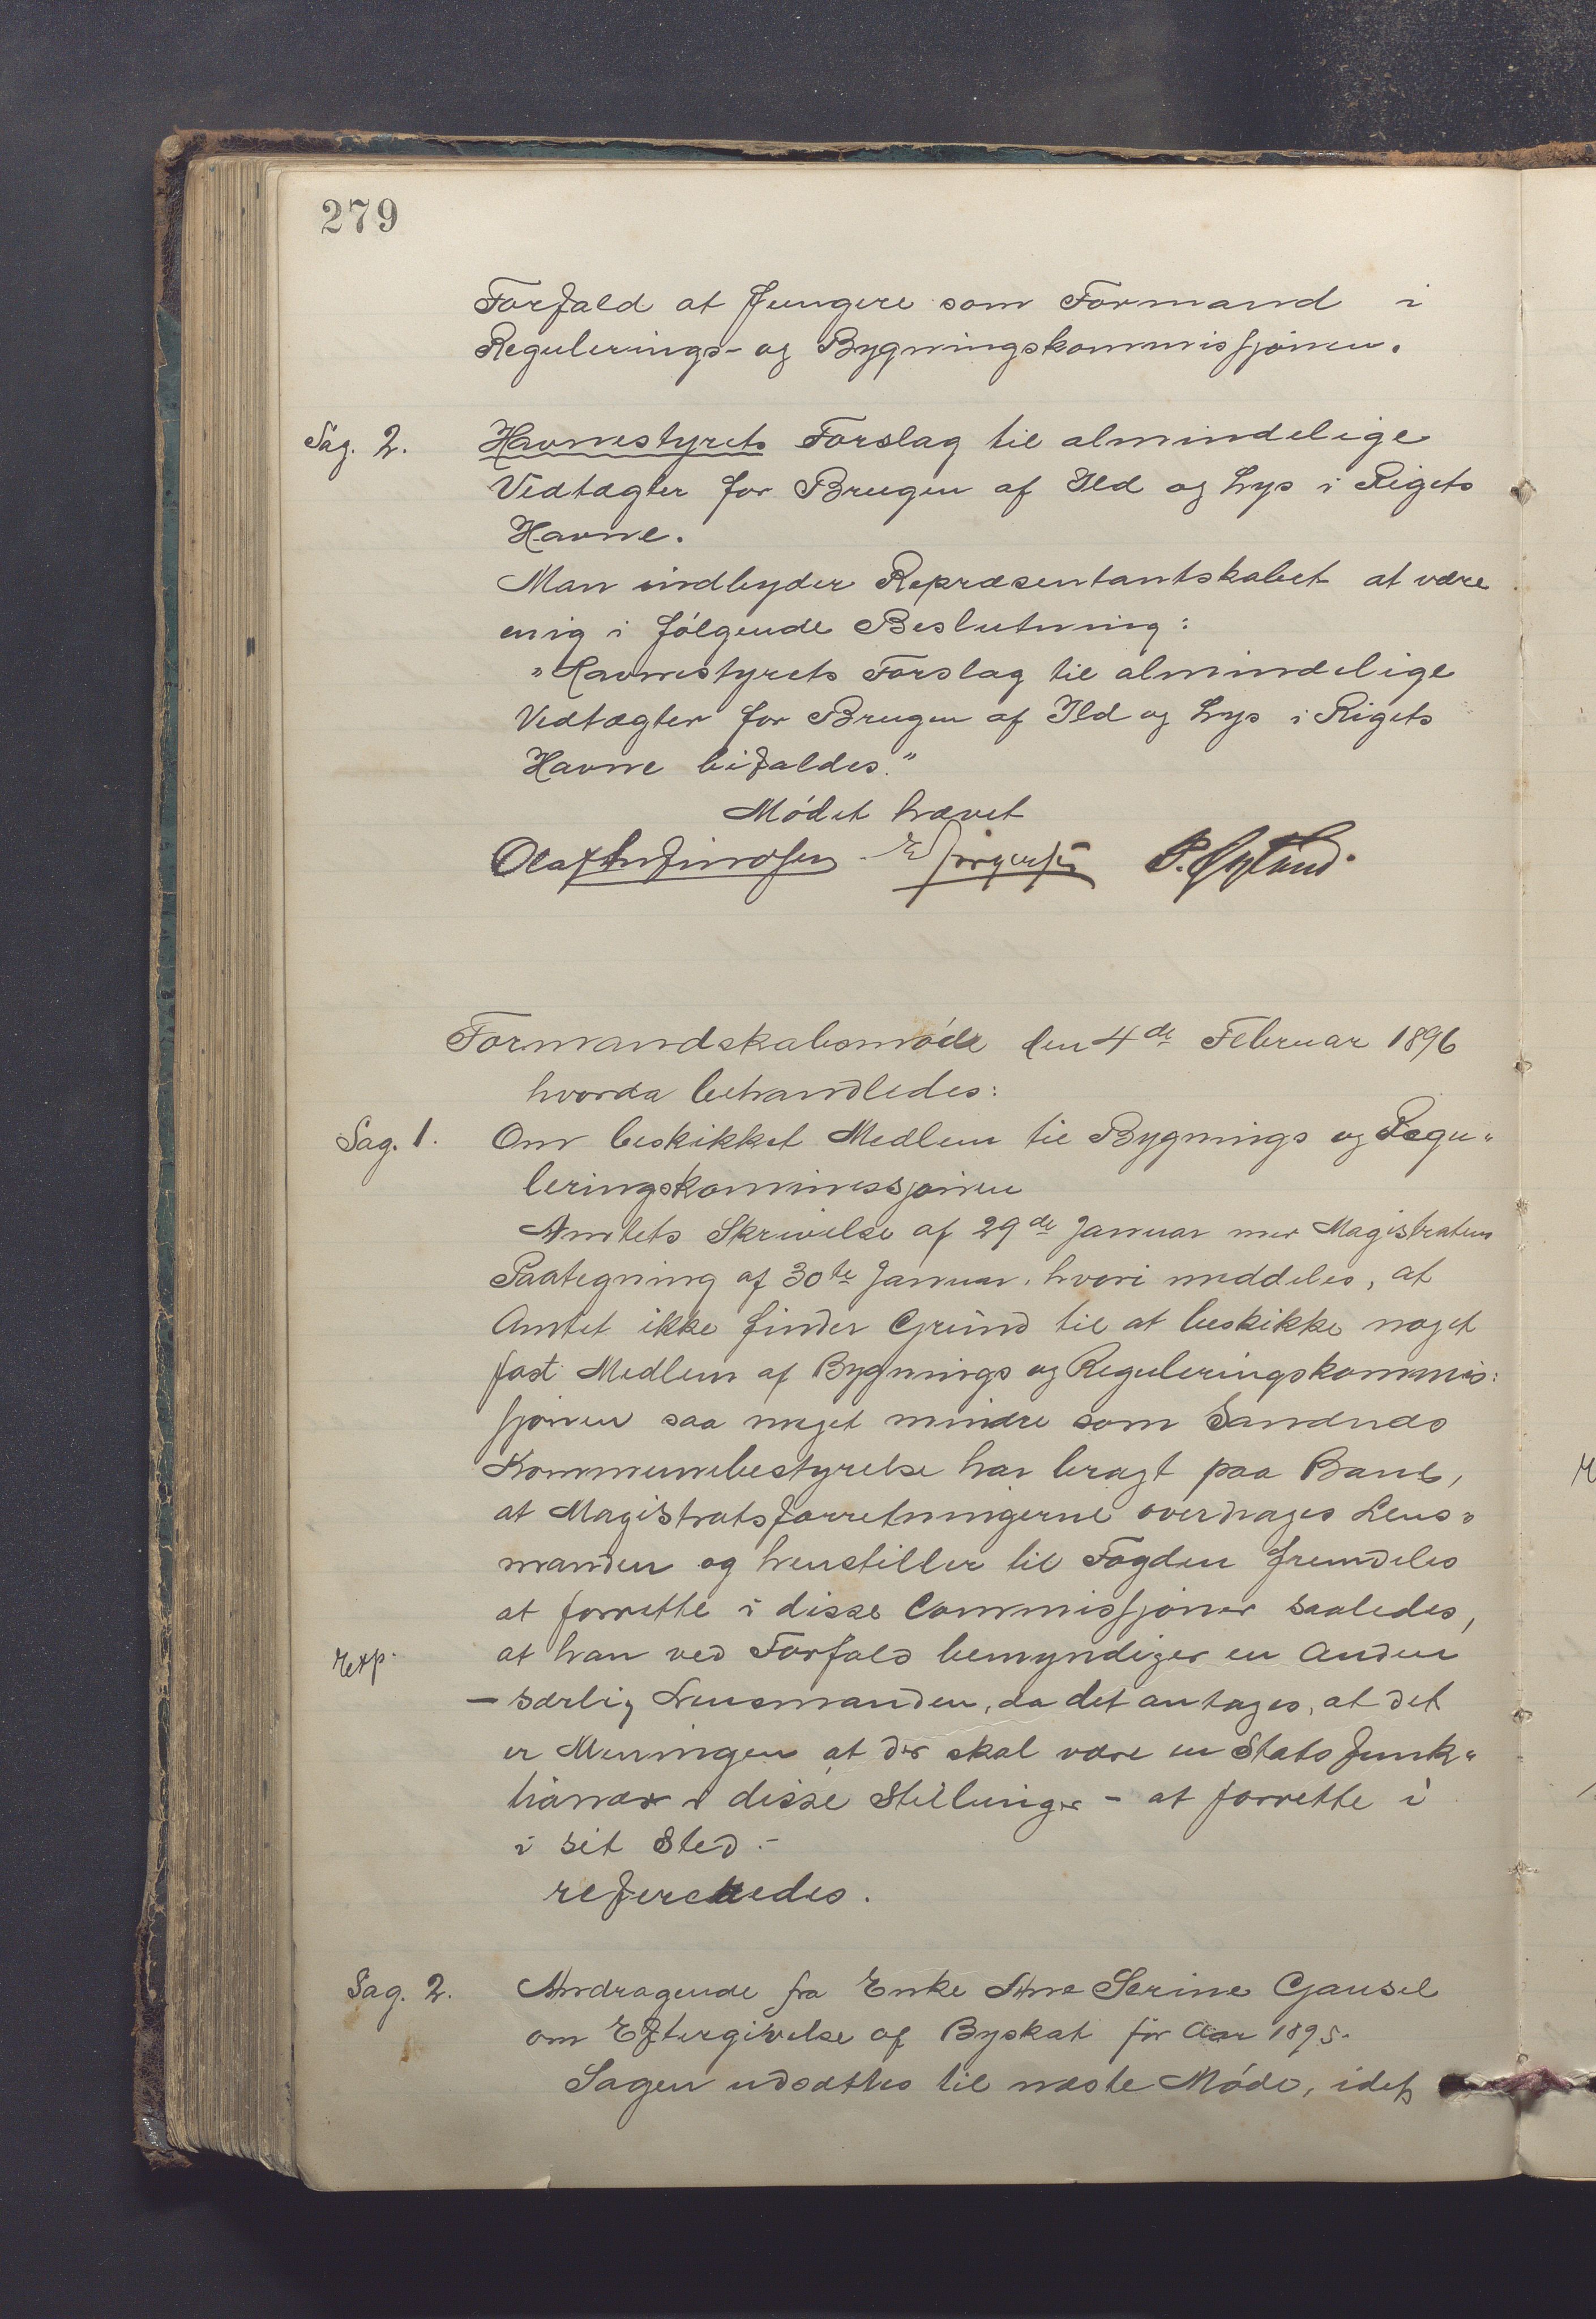 279
Forfald at fungere som Formand i
Regulerings- og Bygningskommissjonen.
Sag. 2. Havnestyrets Forslag til almindelige
Vedtægter for Brugen af Ild og Lys i Rigets
Havne.
Man indbyder Repræsentantskabet at være
enig i følgende Beslutning:
"Havnestyrets Forslag til almindelige
Vedtægter for Brugen af Ild og Lys i Rigets
Havne bifaldes."
Mødet hævet
Olaf
Formandskabsmøde den 4de Februar 1896
hvorda behandledes:
Sag. 1. Om beskikket Medlem til Bygnings og Regu"
leringskommissjonen
Amtets Skrivelse af 29de Januar med Magistratens
Paategning af 30te Januar, hvori meddeles, at
Amtet ikke finder Grund til at beskikke noget
fast Medlem af Bygnings og Reguleringskommis:
sjonen saa meget mindre som Sandnes
Kommunebestyrelse har bragt paa Bane,
at Magistratsforretningerne overdrages Lens"
manden og henstiller til Fogden fremdeles
at forrette i disse Commissjoner saaledes,
Exp. at han ved Forfald bemyndiger en Anden
– særlig Lensmanden, da det antages, at det
er Meningen at der skal være en Stats funk"
tionær i disse Stillinger – at forrette i
i sit Sted.–
refereredes.
Sag. 2. Andragende fra Enke Ane Serine Gausel
om Eftergivelse af Byskat for Aar 1895.
Sagen udsættes til næste Møde, idet